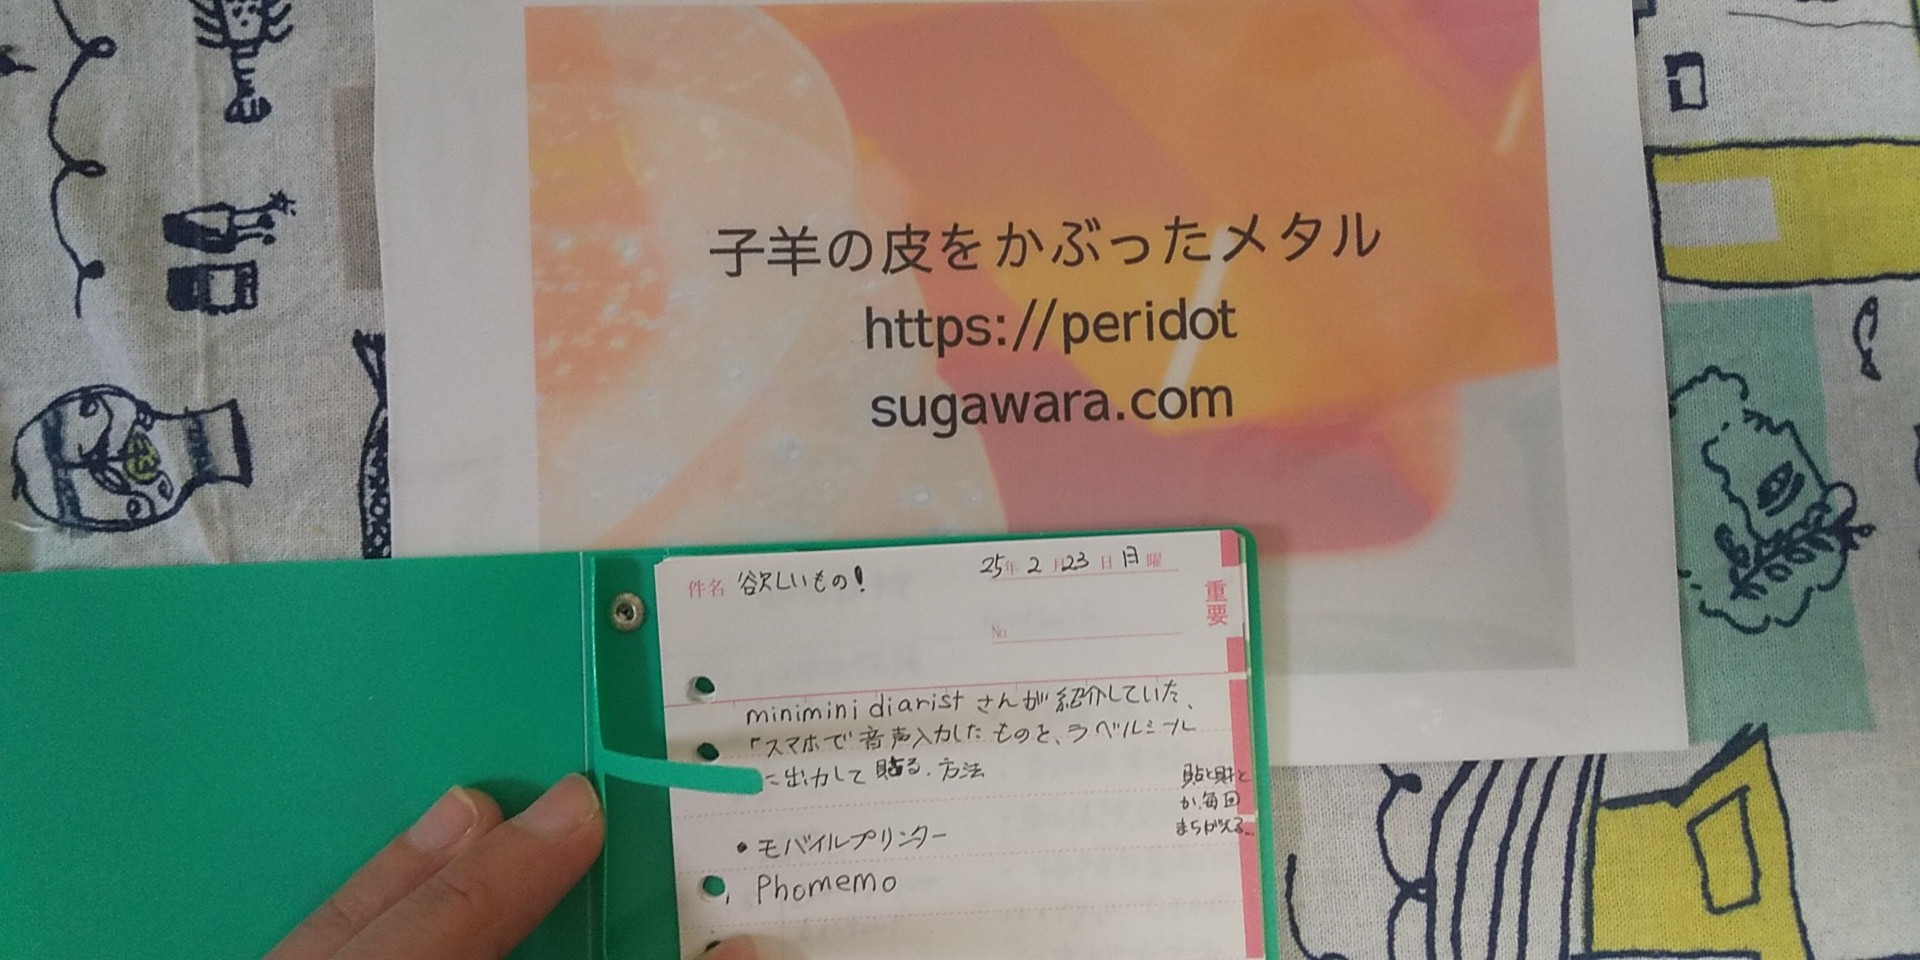 子羊の皮をかぶったメタル
https://peridot
sugawara.com
件名 欲しいもの!
25年 2月 23日 日曜
No.
重要
minimini diarist さんが紹介していた、
「スマホで音声入力したものを、ラベルシール
に出力して貼る、方法
貼と財と
か、毎回
まちがえる…
• モバイルプリンター
Phomemo